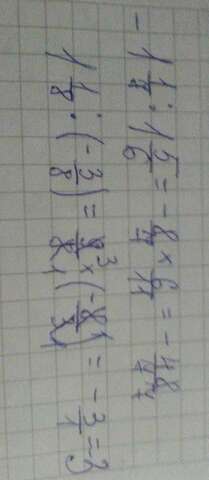 - 1 1/7 : 1 5/6 = - 8/7 × 6/11 = - 48/77
1 1/8 : (- 3/8) = 9³/8₁ × (- 8¹/3₁) = - 3/1 = 3